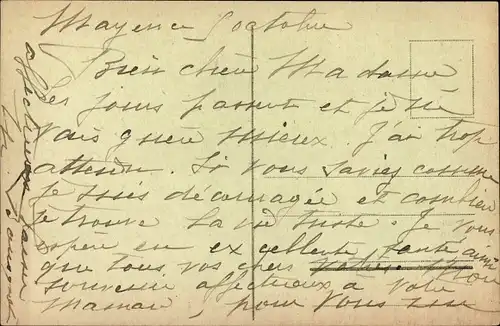 Mayence 5 octobre
Bien chère Madame
Les jours passent et je ne
vais guère mieux. J'ai trop
attendu. Si vous saviez comme
je suis découragée et combien
je trouve la vie triste. Je vous
espère en excellente santé ainsi
que tous vos chers Mon
souvenir affectueux à votre
Maman, pour vous mon
affectueux baiser